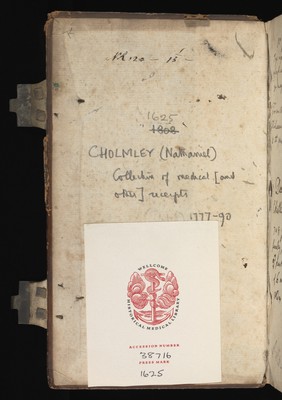 1625
1808
CHOLMLEY (Nathaniel)
Collection of medical [and
other] receipts
1777-90
WELLCOME
HISTORICAL MEDICAL LIBRARY
ACCESSION NUMBER
38716
PRESS MARK
1625